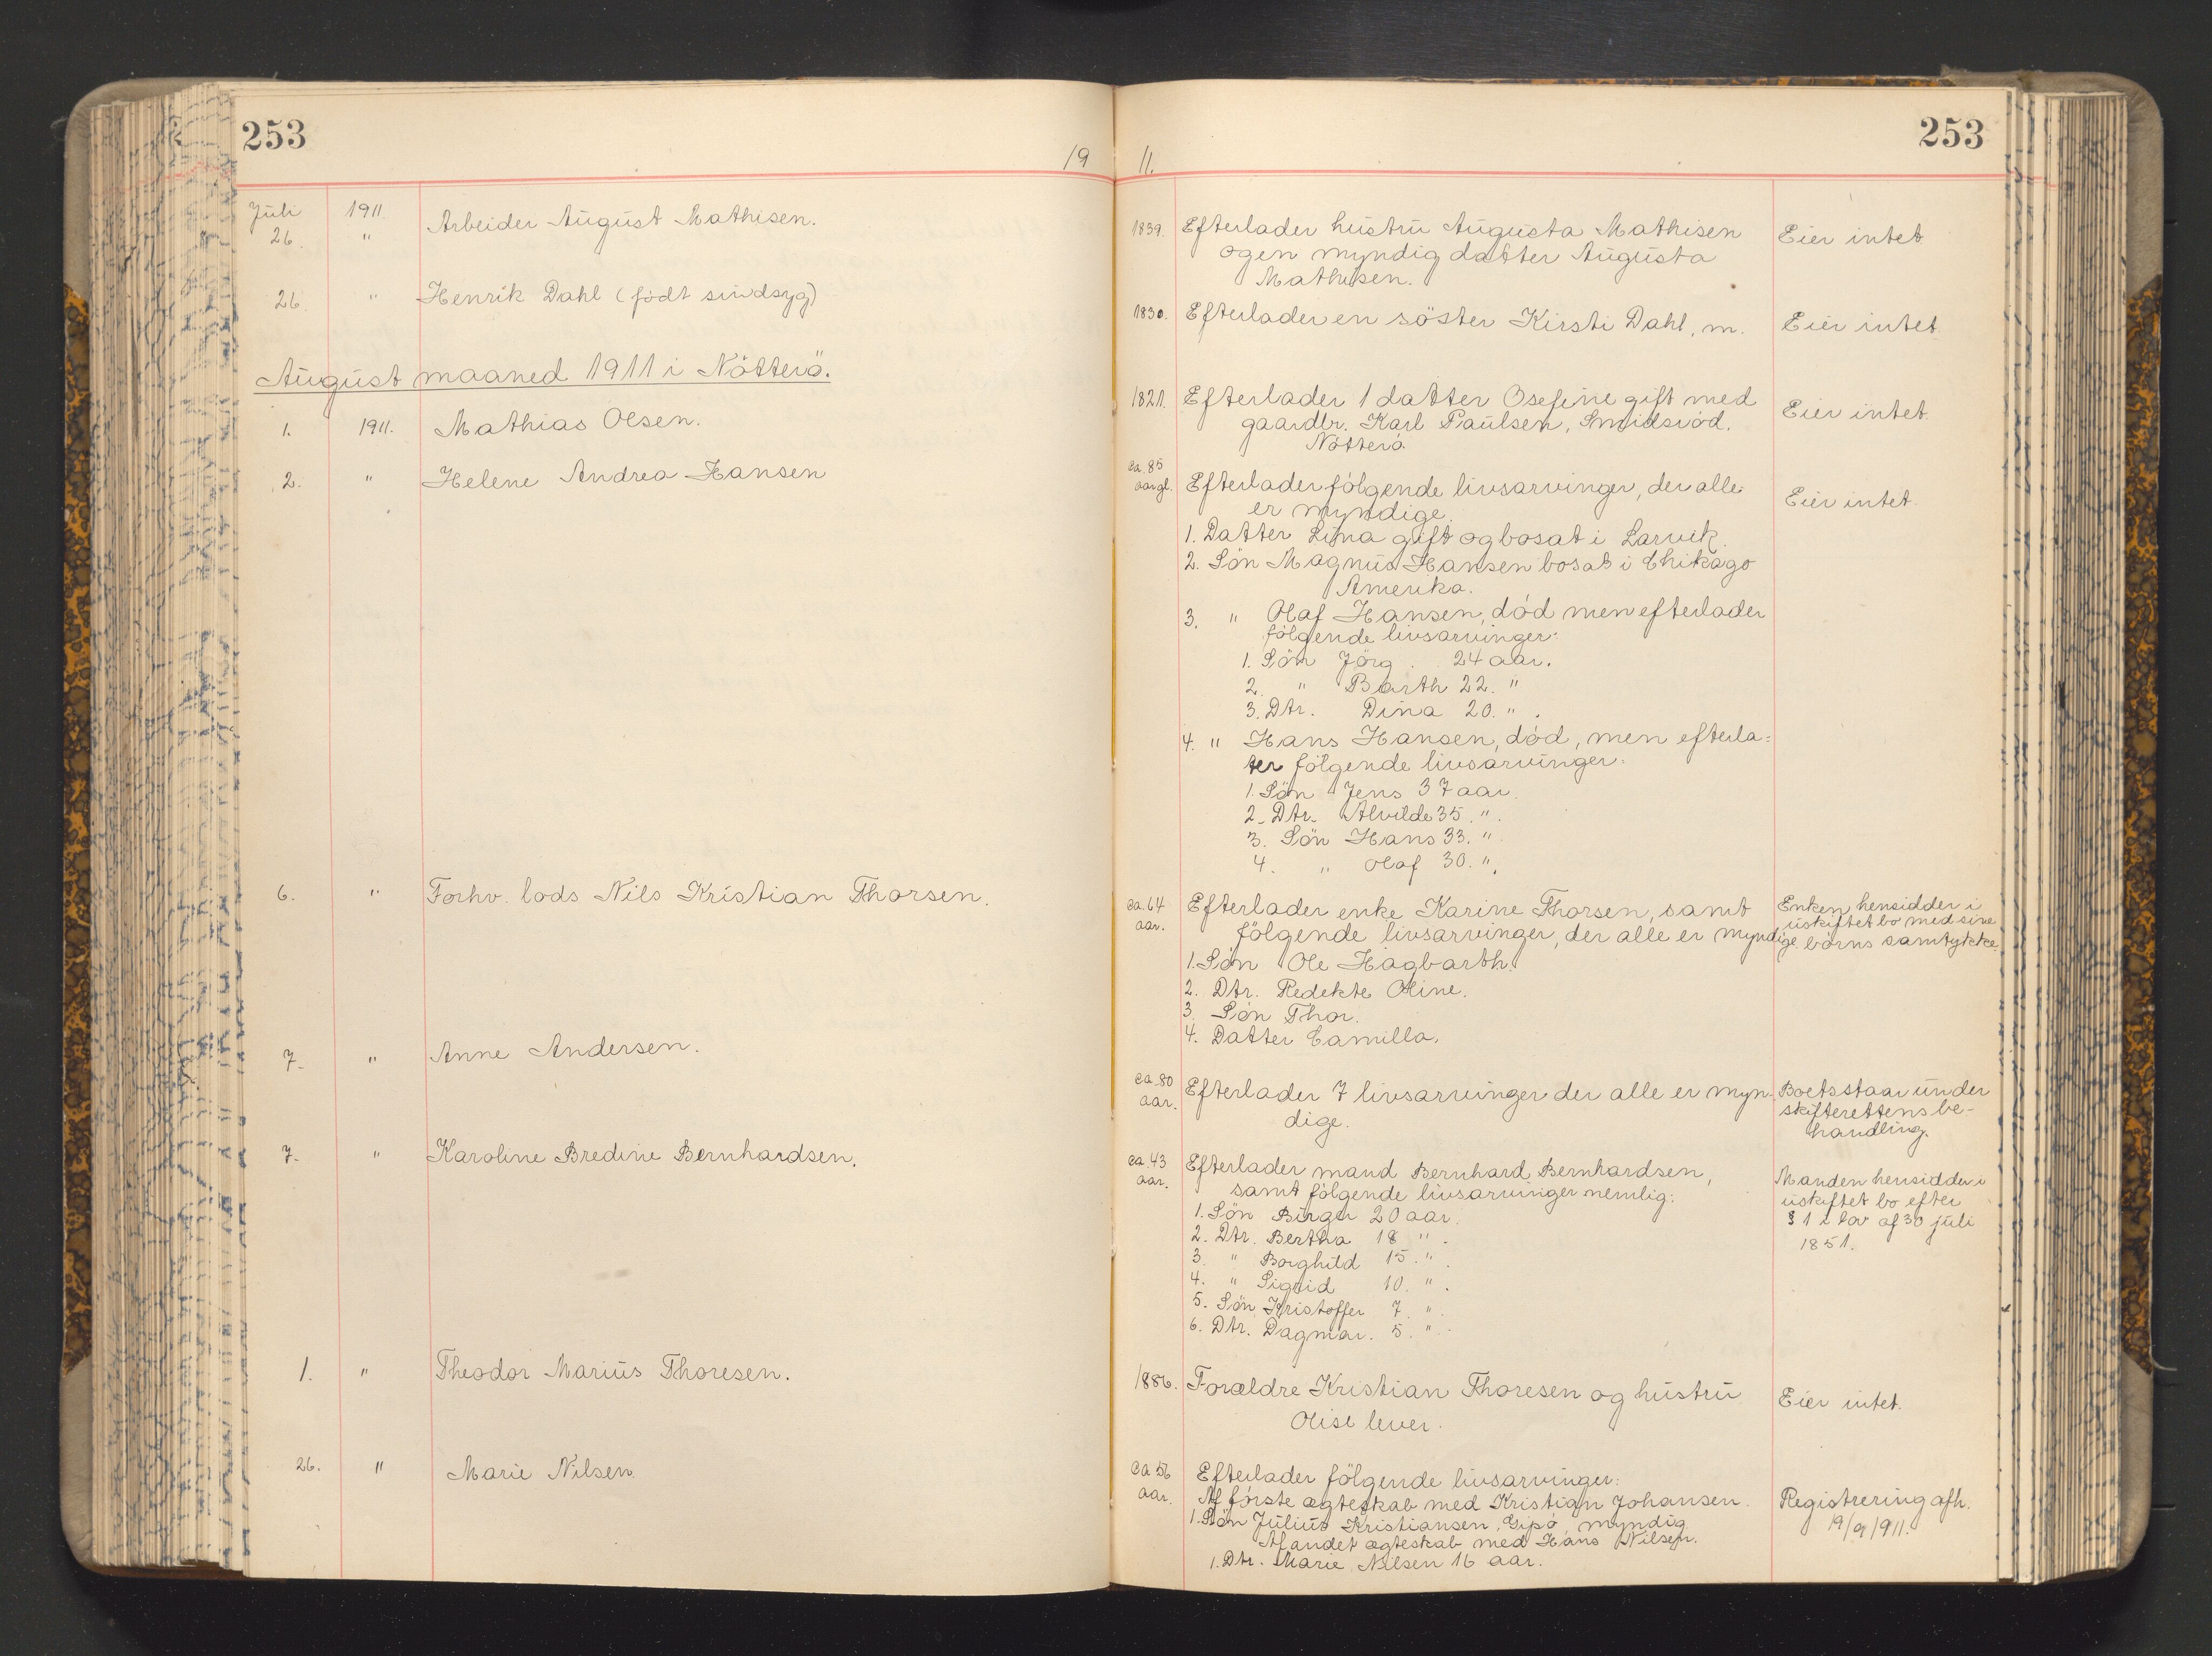 253
253
19 11.
Juli 1911 Arbeider August Mathisen.
26. "
1839. Efterlader hustru Augusta Mathisen
ogen myndig datter Augusta
Mathisen.
Eier intet
26 " Henrik Dahl (födt sindsyg)
1830. Efterlader en söster Kirsti Dahl, m.
Eier intet.
August maaned 1911 i Nötterö.
1. 1911. Mathias Olsen.
1821. Efterlader 1 datter Osefine gift med
gaardbr. Karl Paulsen, Smidsröd.
Nötterö.
Eier intet.
2. " Helene Andrea Hansen
ca. 85
aar gl.
Efterlader fölgende livsarvinger, der alle
er myndige.
Eier intet.
1. Datter Lina gift og bosat i Larvik.
2. Sön Magnus Hansen bosat i Chikago
Amerika.
3. " Olaf Hansen, död men efterlader
fölgende livsarvinger:
1. Sön Jörg. 24 aar.
2. " Barth 22. "
3. Dtr. Dina 20. ".
4. " Hans Hansen, död, men efterla=
ter fölgende livsarvinger.
1. Sön Jens 37 aar.
2. Dtr. Alvilde 35. ".
3. Sön Hans 33. ".
4. " Olaf 30. ".
6. " Forhv. lods Nils Kristian Thorsen.
ca. 64
aar.
Efterlader enke Karine Thorsen, samt
fölgende livsarvinger, der alle er myndige
1. Sön Ole Hagbarth.
2. Dtr. Redekte Oline.
3. Sön Thor.
4. Datter Camilla.
Enken hensidder i
uskiftet bo med sine
börns samtykke.
7. " Anne Andersen.
ca. 80
aar.
Efterlader 7 livsarvinger der alle er myn-
dige.
Boets staar under
skifterettens be-
handling.
7. " Karoline Bredine Bernhardsen.
ca. 43
aar.
Efterlader mand Bernhard Bernhardsen,
samt fölgende livsarvinger nemlig:
1. Sön Birger 20 aar.
2. Dtr. Bertha 18 ".
3. " Borghild 15. ".
4. " Sigrid 10. ".
5. Sön Kristoffer 7. ".
6. Dtr. Dagmar. 5. ".
Manden hensidder i
uskiftet bo efter
§ 1 i lov af 30 juli
1851.
1. " Theodor Marius Thoresen.
1886. Forældre Kristian Thoresen og hustru
Olise lever.
Eier intet.
26. " Marie Nilsen.
ca 56
aar.
Efterlader fölgende livsarvinger:
Af förste ægteskab med Kristian Johansen.
1. Sön Julius Kristiansen, Gipö, myndig
Af andet ægteskab med Hans Nilsen.
1. Dtr. Marie Nilsen 16 aar.
Registrering afh.
19/9 1911.